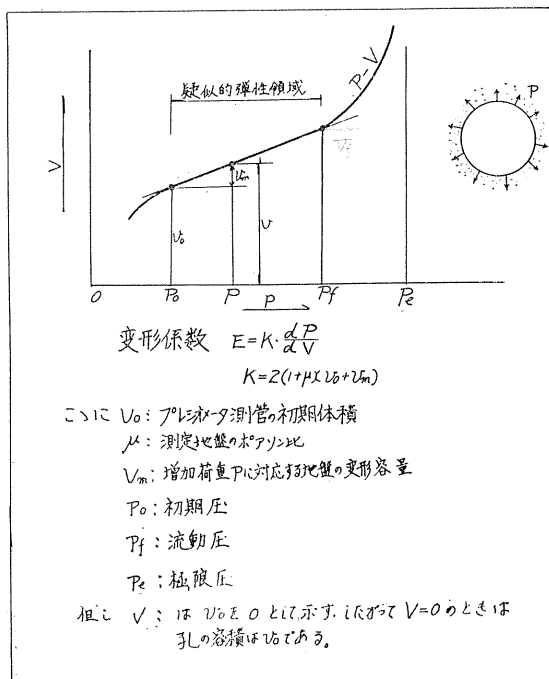 疑似的弾性領域
P-V
P
V
Vm
V
V₀
O
P₀
P
P
Pf
Pe
変形係数 E=K・dP/dV
K=2(1+μ)(V₀+Vm)
こゝに V₀: プレシオメータ測管の初期体積
μ: 測定地盤のポアソン比
Vm: 増加荷重Pに対応する地盤の変形容量
P₀: 初期圧
Pf: 流動圧
Pe: 極限圧
但し V: は V₀を 0 として示す. したがって V=0 のときは
孔の容積はV₀である。